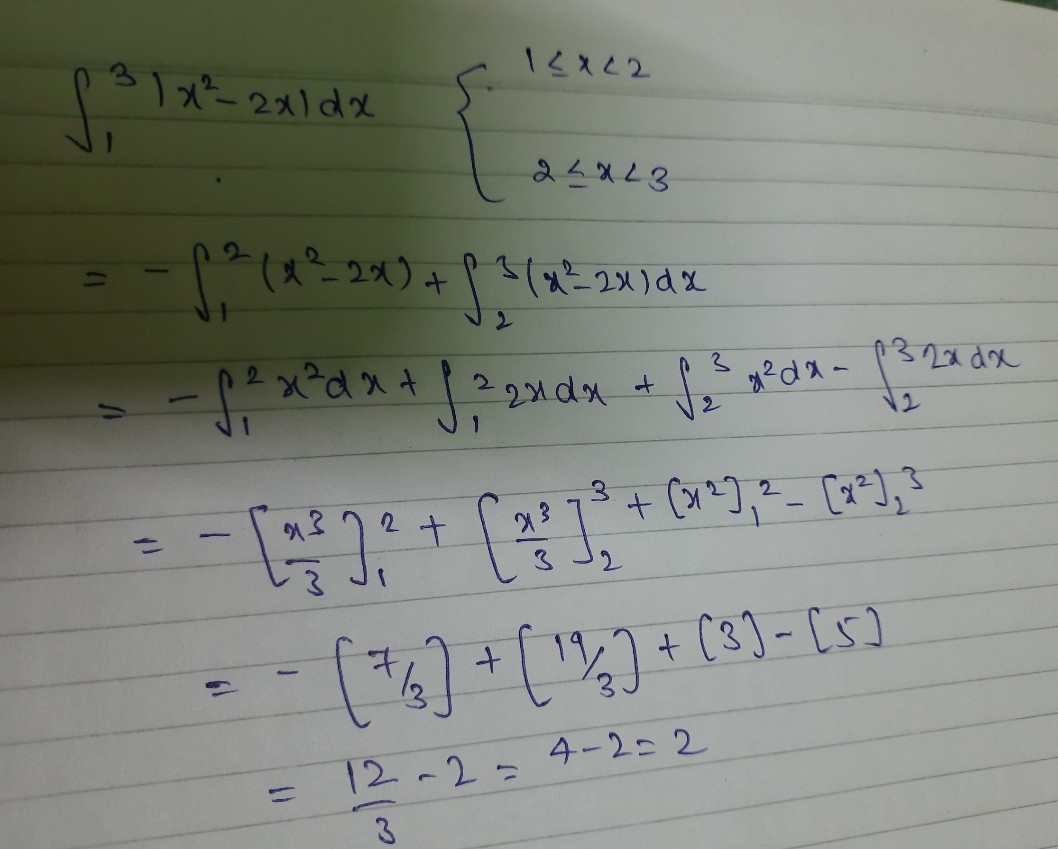 ∫₁³ |x²-2x|dx { 1≤x<2
2≤x<3
= -∫₁² (x²-2x) + ∫₂³ (x²-2x)dx
= -∫₁² x²dx + ∫₁² 2xdx + ∫₂³ x²dx - ∫₂³ 2xdx
= -[x³/3]₁² + [x³/3]₂³ + [x²]₁² - [x²]₂³
= -[7/3] + [19/3] + [3] - [5]
= 12/3 - 2 = 4-2 = 2